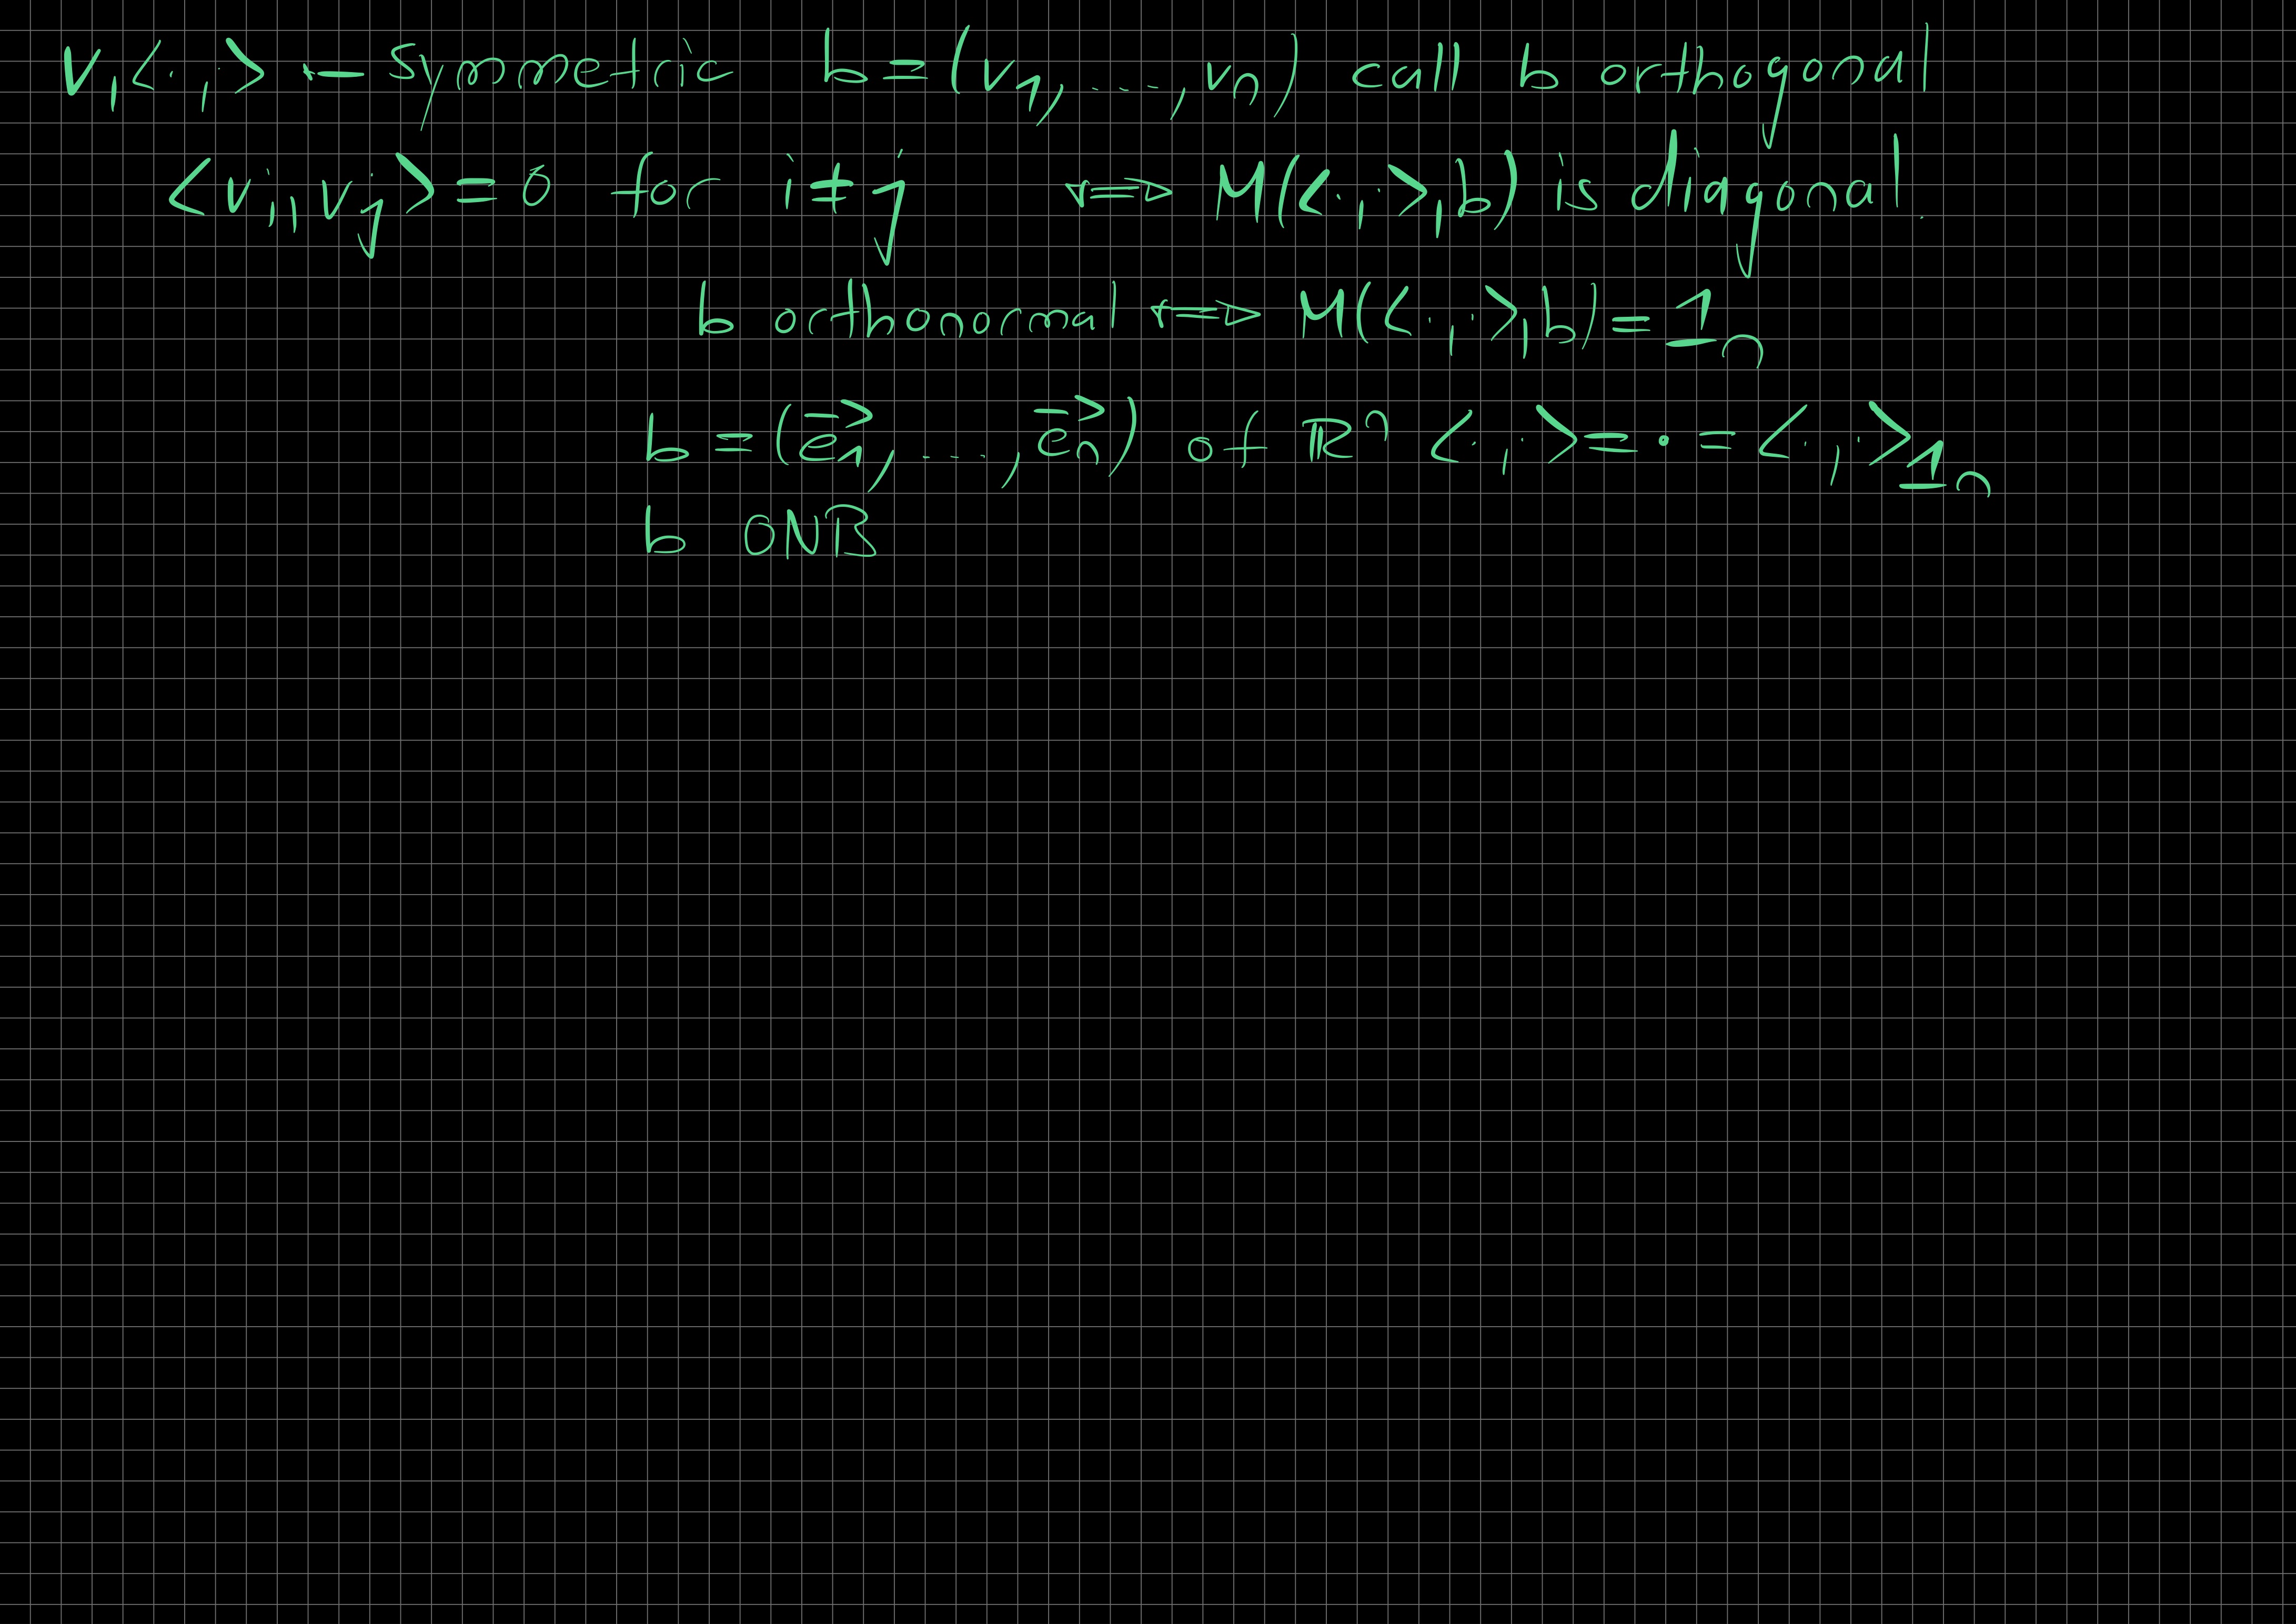 V,<·,·> ← symmetric b=(v₁,...,vₙ) call b orthogonal
<vᵢ,vⱼ>=0 for i≠j ⇔ M(<·,·>,b) is diagonal.
b orthonormal ⇔ M(<·,·>,b)=1ₙ
b=(e⃗₁,...,e⃗ₙ) of ℝⁿ <·,·>=•=<·,·>1ₙ
b ONB